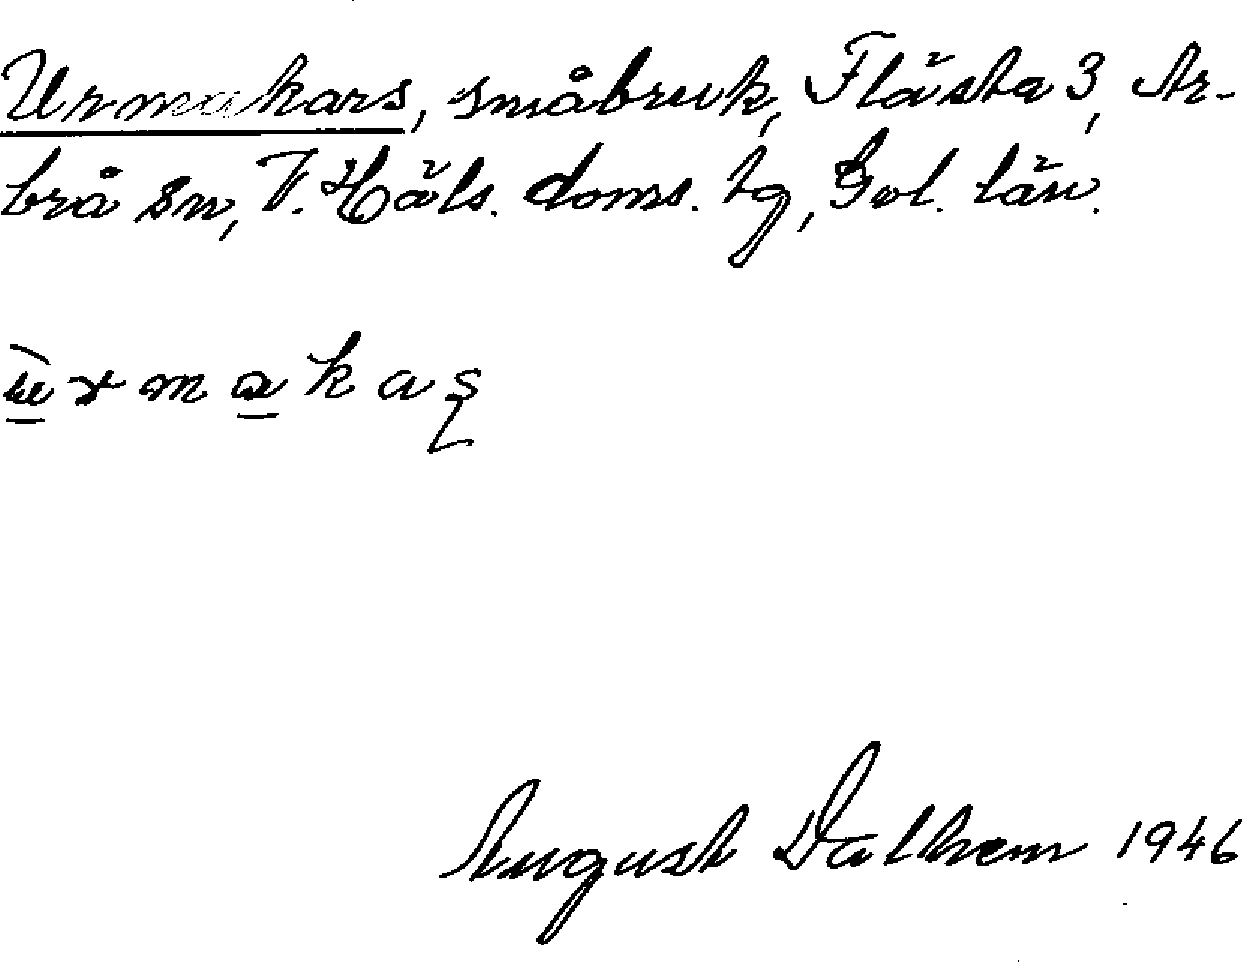 Urmakars, småbruk, Flästa 3, Ar-
brå sn, V. Häls. doms. tg, Gvl. län.
ù̲ r m a̲ k a ʂ
August Dalhem 1946